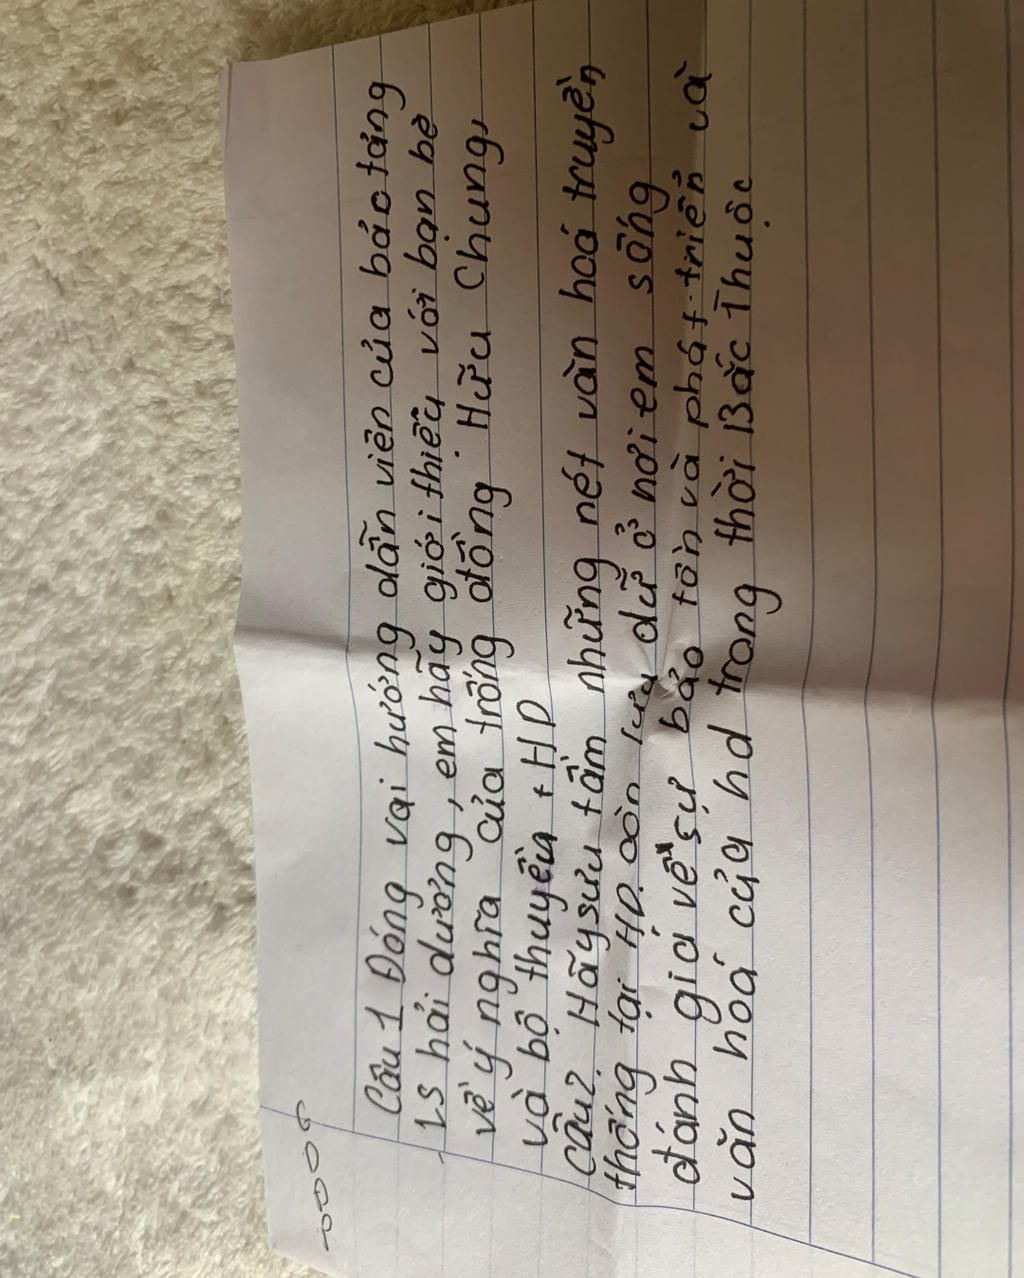 Câu 1 Đóng vai hướng dẫn viên của bảo tảng
LS hải dương, em hãy giới thiệu với bạn bè
về ý nghĩa của trống đồng Hữu Chung,
và bộ thuyền + HD
Câu2. Hãy sưu tầm những nét văn hoá truyền
thống tại HD. còn lưu dữ ở nơi em sống
đánh giá về sự bảo tồn và phát triển và
văn hoá của hd trong thời Bắc Thuộc